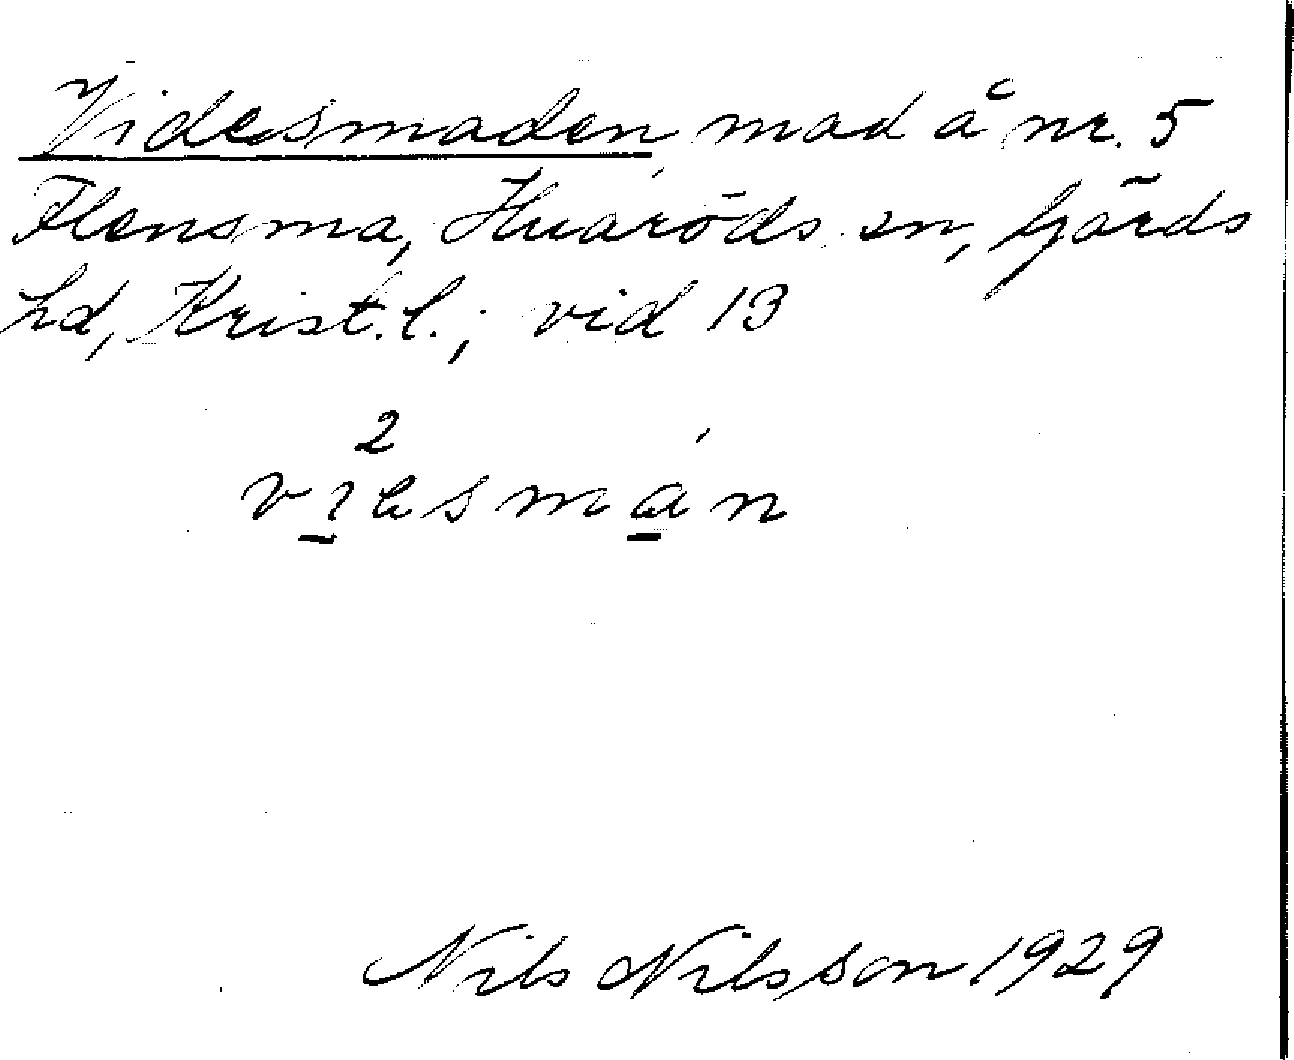 Videsmaden, mad å nr. 5
Flensma, Huaröds sn, Gärds
hd, Krist. l.; vid 13
2
Nils Nilsson 1929